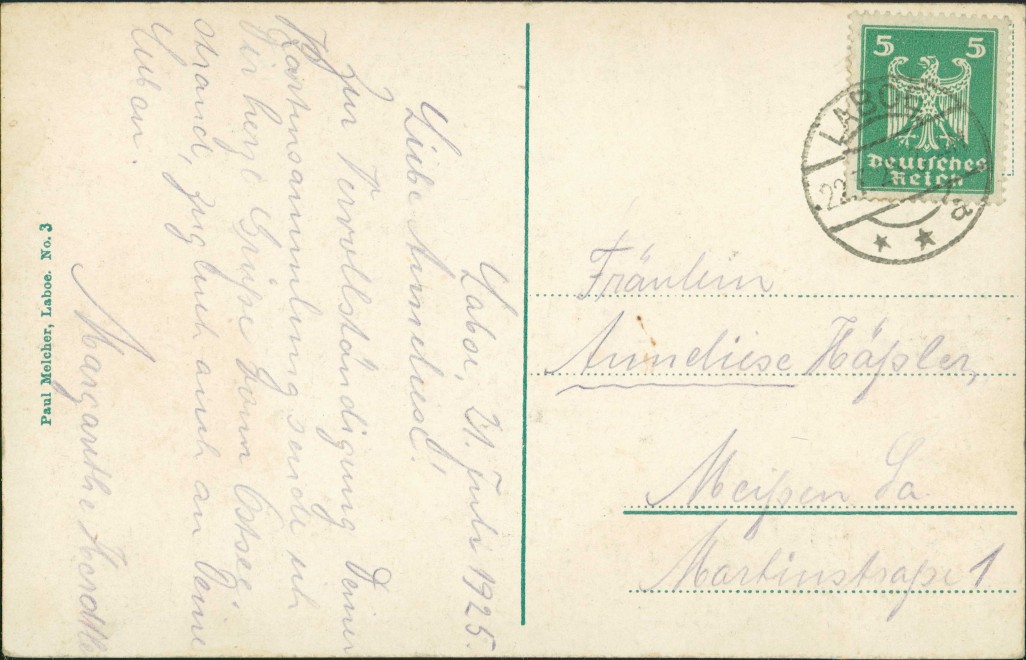 Laboe, 21. Juli 1925.
Liebe Anneliese!
Zur Vervollständigung Deiner
Kartensammlung sende ich
Dir herzl. Grüsse vom Ostsee-
strand, zugleich auch an Deine
Lieben.
Margarethe
Paul Melcher, Laboe. No. 3
5 5
Deutsches
Reich
LABOE
22.7.
a
Fräulein
Anneliese Häßler,
Meißen Sa.
Martinstraße 1